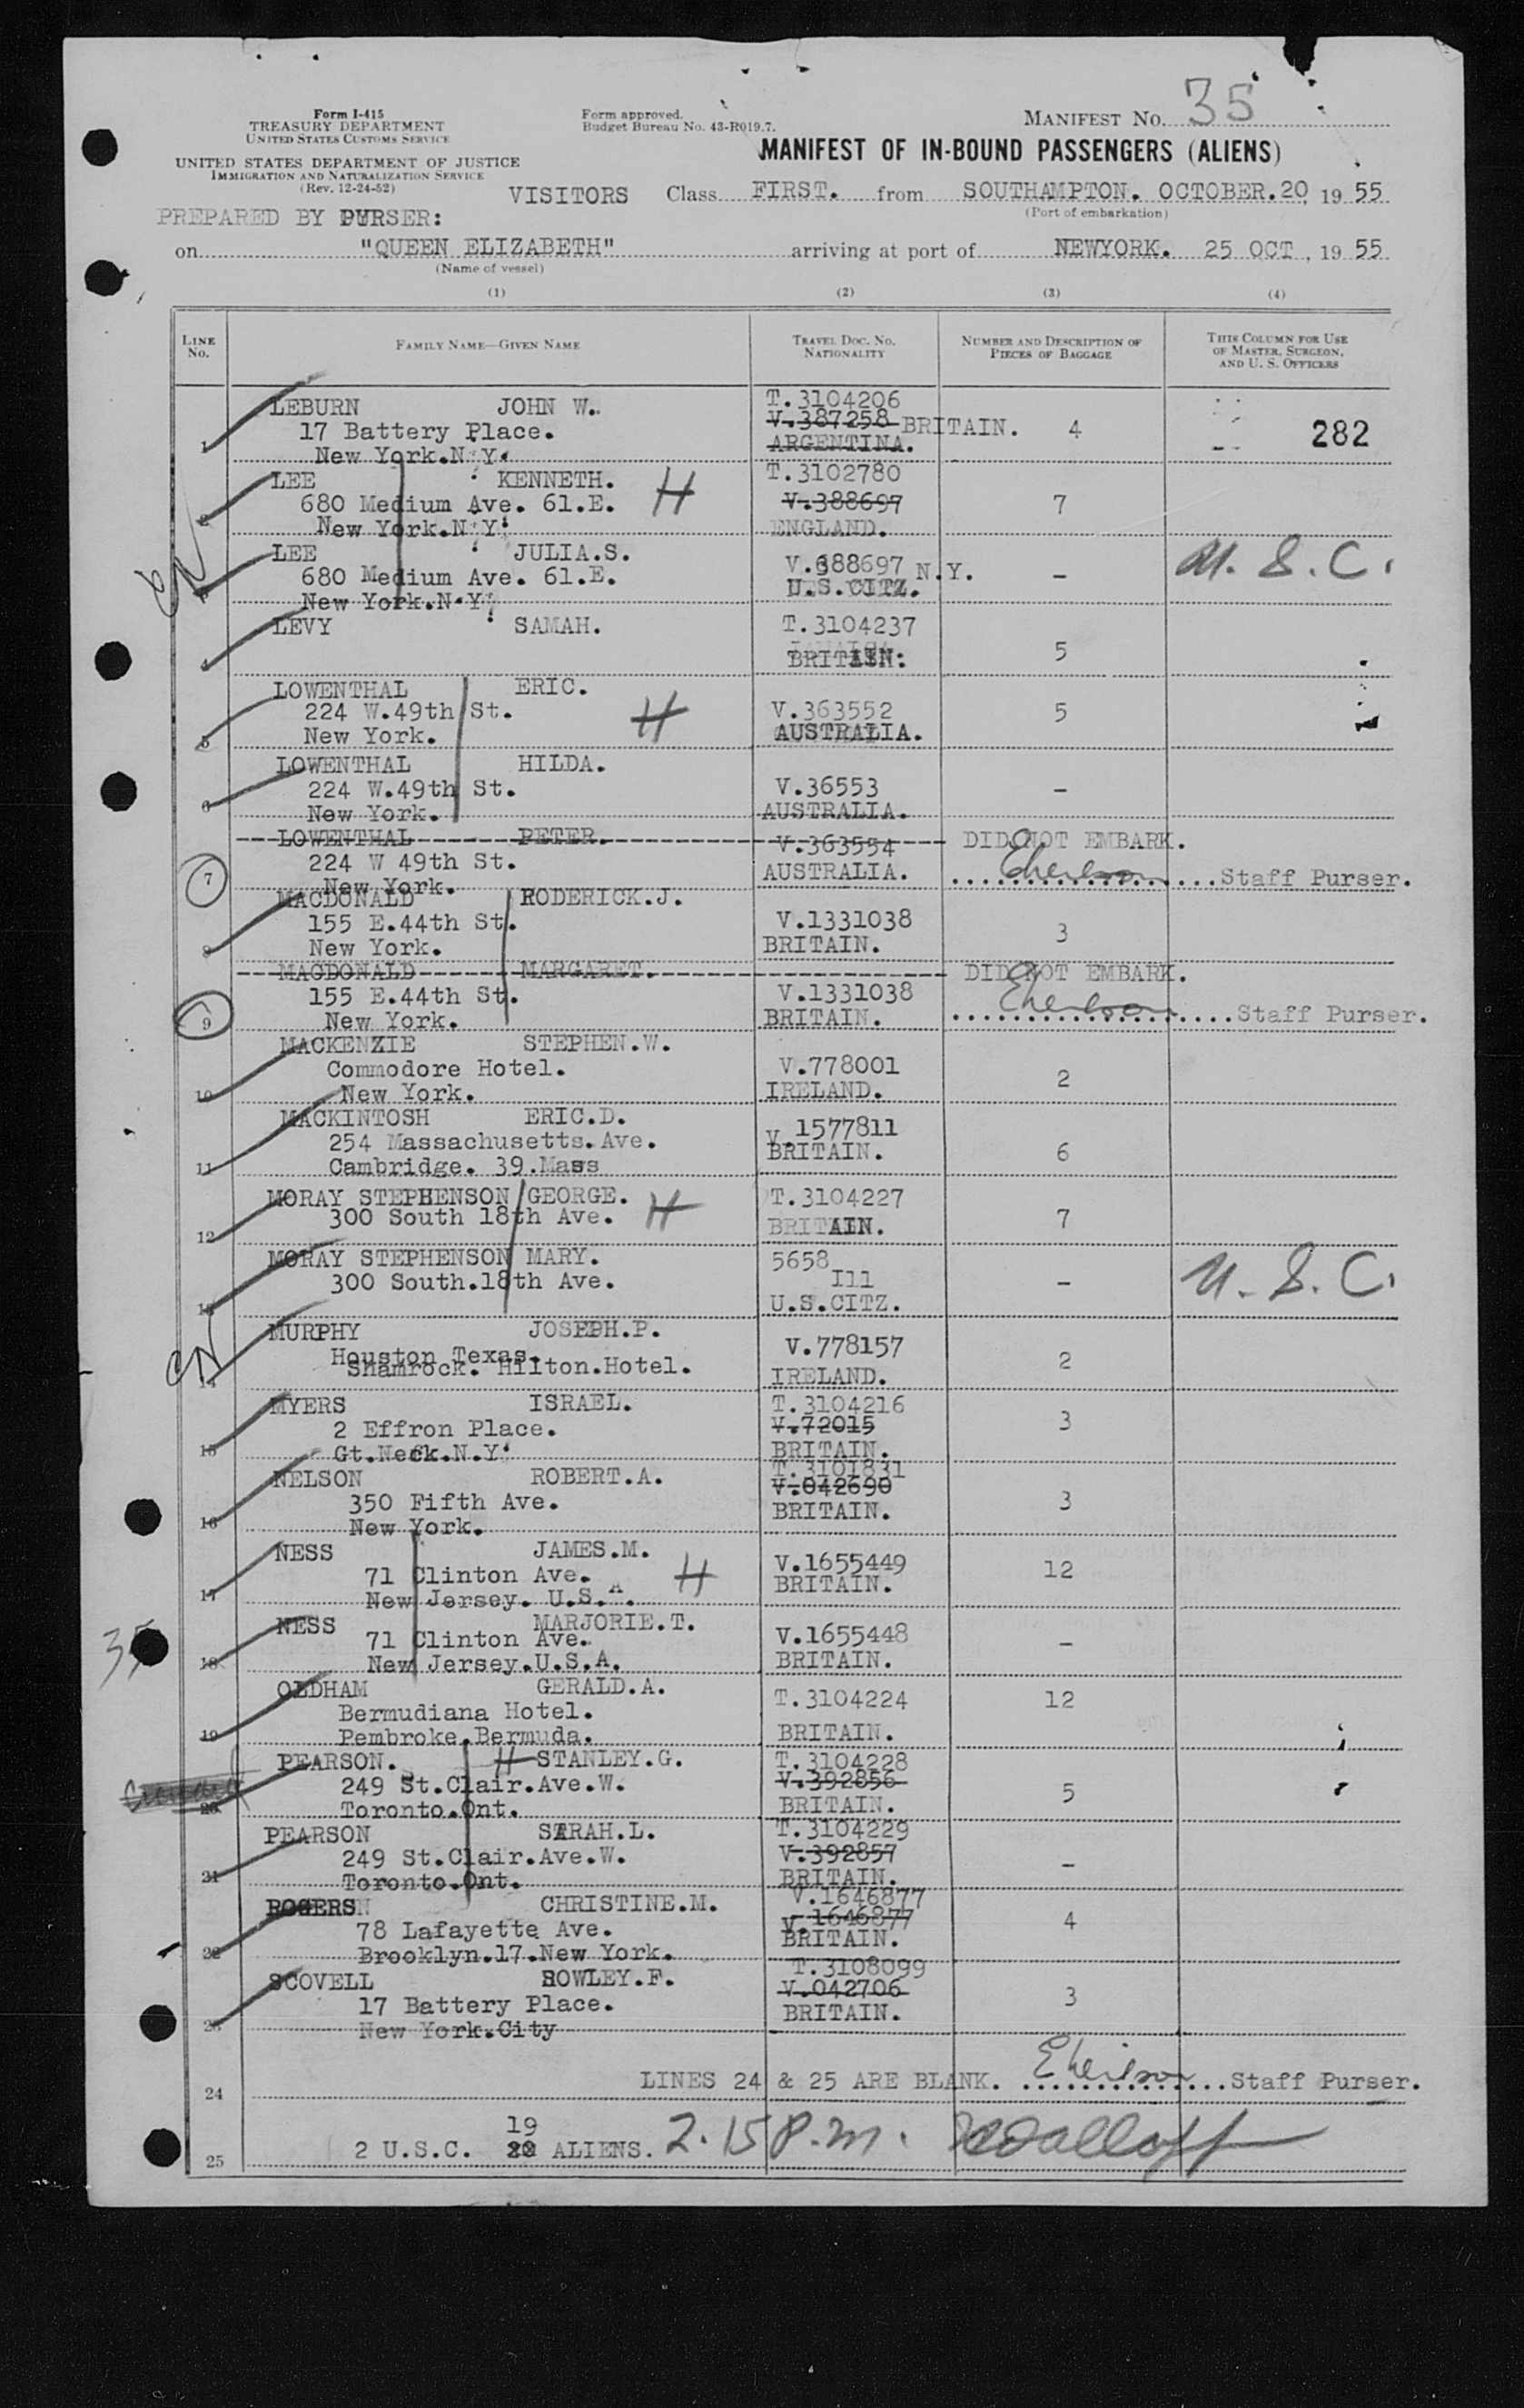 Form I-415
TREASURY DEPARTMENT
UNITED STATES CUSTOMS SERVICE
UNITED STATES DEPARTMENT OF JUSTICE
IMMIGRATION AND NATURALIZATION SERVICE
(Rev. 12-24-52)
Form approved.
Budget Bureau No. 43-R019.7.
MANIFEST No. 35
MANIFEST OF IN-BOUND PASSENGERS (ALIENS)
VISITORS Class FIRST. from SOUTHAMPTON. OCTOBER.20, 19 55
(Port of embarkation)
PREPARED BY PURSER:
on "QUEEN ELIZABETH" arriving at port of NEWYORK. 25 OCT, 19 55
(Name of vessel)
(1) (2) (3) (4)
LINE No. FAMILY NAME—GIVEN NAME TRAVEL DOC. NO. NATIONALITY NUMBER AND DESCRIPTION OF PIECES OF BAGGAGE THIS COLUMN FOR USE OF MASTER, SURGEON, AND U. S. OFFICERS
LEBURN JOHN W. T.3104206
1 17 Battery Place. V.387258 BRITAIN. 4 282
New York.N.Y. ARGENTINA.
LEE KENNETH. T.3102780
2 680 Medium Ave. 61.E. H V.388697 7
New York.N.Y. ENGLAND.
LEE JULIA.S. V.388697 N.Y. U. S. C.
3 680 Medium Ave. 61.E. U.S.CITZ. -
New York.N.Y.
LEVY SAMAH. T.3104237
4 BRITAIN: 5
LOWENTHAL ERIC.
224 W.49th St. H V.363552 5
5 New York. AUSTRALIA.
LOWENTHAL HILDA.
6 224 W.49th St. V.36553 -
New York. AUSTRALIA.
LOWENTHAL PETER. V.363554 DID NOT EMBARK.
7 224 W 49th St. AUSTRALIA. Staff Purser.
New York.
MACDONALD RODERICK.J.
155 E.44th St. V.1331038 3
8 New York. BRITAIN.
MACDONALD MARGARET. DID NOT EMBARK.
155 E.44th St. V.1331038
9 New York. BRITAIN. Staff Purser.
MACKENZIE STEPHEN.W.
Commodore Hotel. V.778001 2
10 New York. IRELAND.
MACKINTOSH ERIC.D.
254 Massachusetts.Ave. V.1577811
11 Cambridge. 39.Mass BRITAIN. 6
MORAY STEPHENSON GEORGE. T.3104227
12 300 South 18th Ave. H BRITAIN. 7
MORAY STEPHENSON MARY. 5658
13 300 South.18th Ave. Ill - U. S. C.
U.S.CITZ.
MURPHY JOSEPH.P. V.778157
Houston Texas. 2
14 Shamrock. Hilton.Hotel. IRELAND.
MYERS ISRAEL. T.3104216
2 Effron Place. V.72015 3
15 Gt.Neck.N.Y. BRITAIN.
NELSON ROBERT.A. T.3101831
350 Fifth Ave. V.042690 3
16 New York. BRITAIN.
NESS JAMES.M. V.1655449
71 Clinton Ave. H BRITAIN. 12
17 New Jersey. U.S.A.
NESS MARJORIE.T.
35 71 Clinton Ave. V.1655448 -
18 New Jersey.U.S.A. BRITAIN.
OLDHAM GERALD.A. T.3104224 12
Bermudiana Hotel.
19 Pembroke.Bermuda. BRITAIN.
PEARSON. H STANLEY.G. T.3104228
249 St.Clair.Ave.W. V.392856 5
20 Toronto.Ont. BRITAIN.
PEARSON SARAH.L. T.3104229
249 St.Clair.Ave.W. V.392857 -
21 Toronto.Ont. BRITAIN.
ROGERS CHRISTINE.M. V.1646877
78 Lafayette Ave. V.1646877 4
22 Brooklyn.17.New York. BRITAIN.
SCOVELL ROWLEY.F. T.3108099
17 Battery Place. V.042706 3
23 New York.City BRITAIN.
24 LINES 24 & 25 ARE BLANK. Staff Purser.
19
25 2 U.S.C. 20 ALIENS. 2.15 P.m.